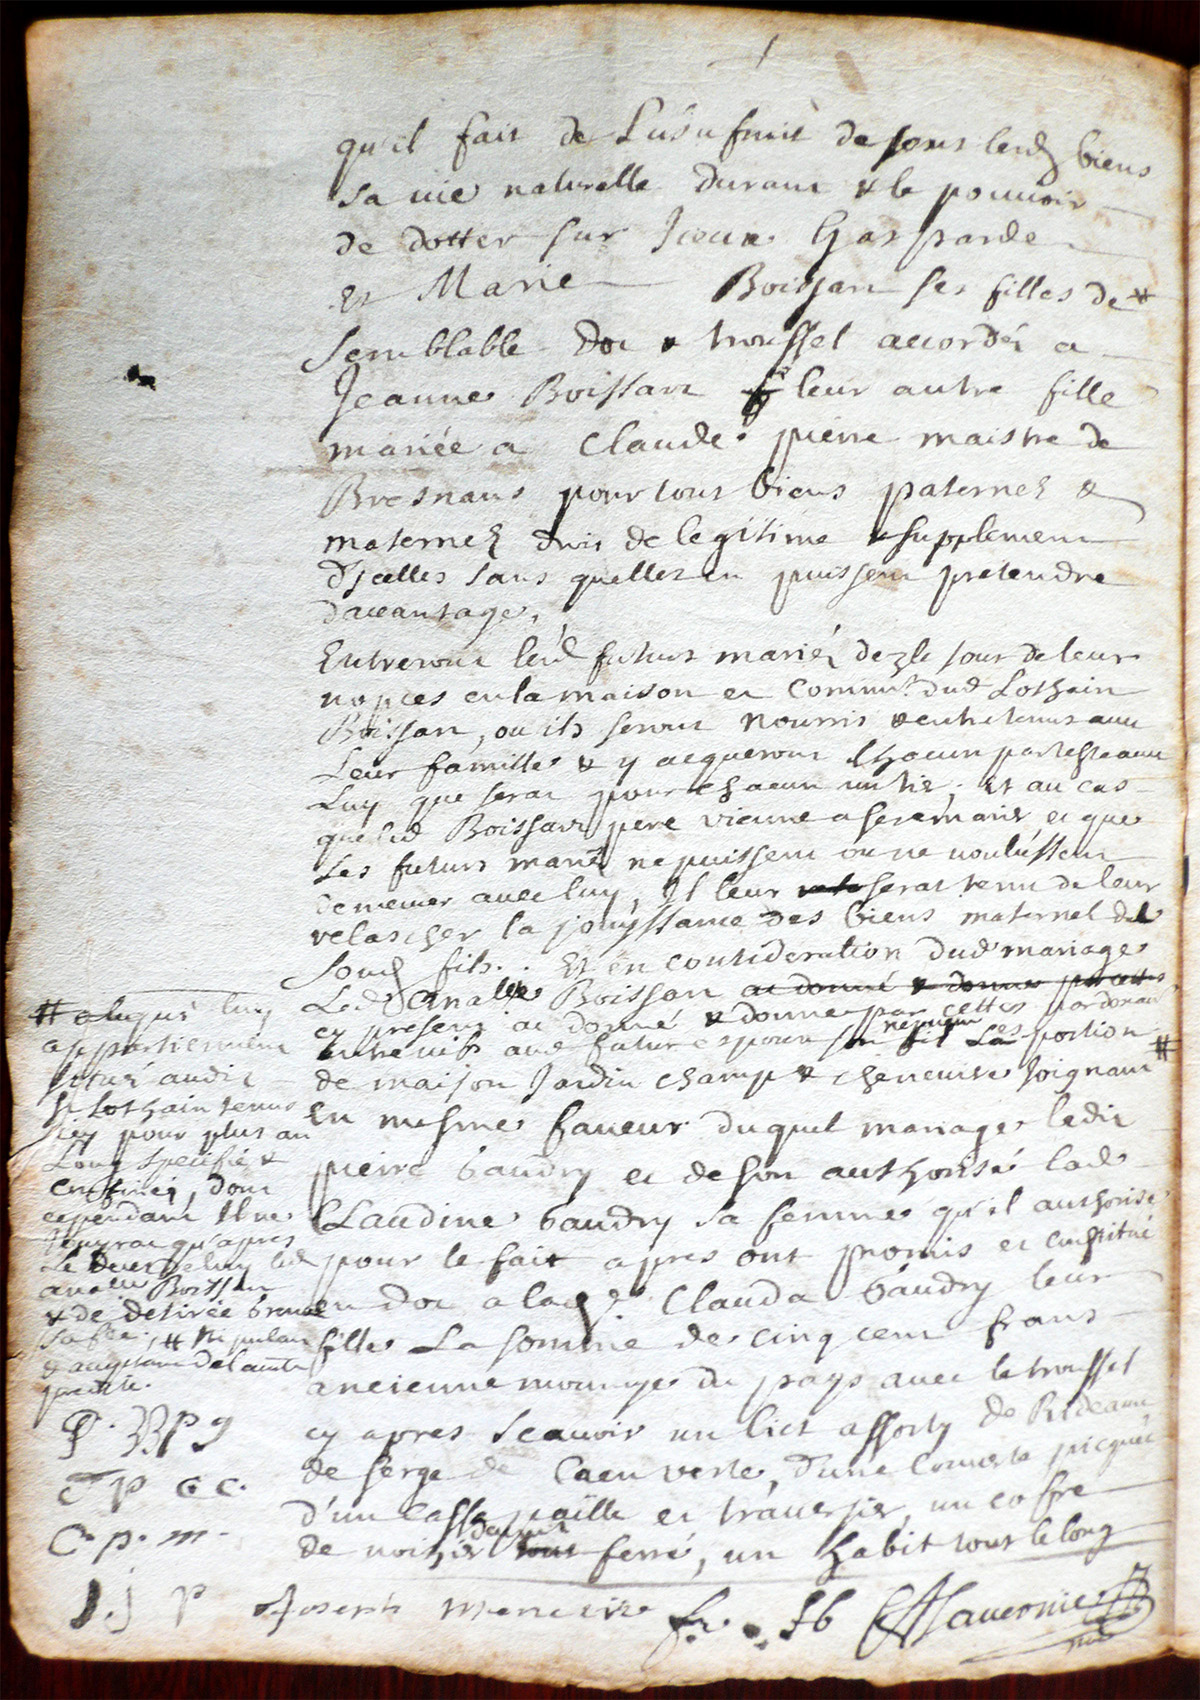 qu'il fait de L'usufruit de tous lesd biens
sa vie naturelle durant & le pouvoir
de dotter sur Jeanne Gasparde
et Marie Boissart ses filles de
semblable dot & troussel accordés a
Jeanne Boissart leur autre fille
mariée a Claude pierre maistre de
Bresnans pour tous biens paternez &
maternez drois de legitime & supplement
d'jcelles sans quelles en puissent pretendre
davantage,
Entreront lesd futurs mariéz dez le jour de leur
nopces en la maison et commun dud Lothain
Boissart, ou ils seront nourris & entretenus avec
Leur famille & y acqueront chacun par teste avec
Luy que serat pour chacun un tier, Et au cas
que led Boissart pere vienne a se remarier et que
Les futurs mariéz ne puissent ou ne voulussent
demeurer avec luy, Il leur serat tenu de leur
relascher la jouyssance des biens maternel de
sond fils. Et en consideration dud mariage
Led Anatle Boisson ac donné & donne par cette
cy present ac donné & donne par cettes par donation
entre vifs aud futur espoux son nepveur Les portion
de maison Jardin champs & cheneviere joignant #
En mesme faveur duquel mariage ledit
pierre Gaudry et de son authorité lad
Claudine Gaudry sa femme qu'il authorise
pour le fait apres ont promis et constitué
en dot a lad Clauda Gaudry leur
fille La somme de cinq cent frans
ancienne monnoye du pays avec le troussel
cy apres scavoir un lict assorty de Rideaux
de serge de Caen verte, d'une Couverte picquée
d'un Casse paille et traversier, un coffre
de noihier ferré, un habit tout le long
# auquel luy
appartiennent
situéz audit
St Lothain tenus
icy pour plus au
Long specifié &
confinéz, dont
cependant Il ne
jouyrat qu'apres
Le deces de luy led
anatle Boissan
& de desirée
sa fee, # stipulant
& acceptant de l'autre
part
P. BPg
T P G C.
C. p. m.
J. j P Joseph fr. Jb